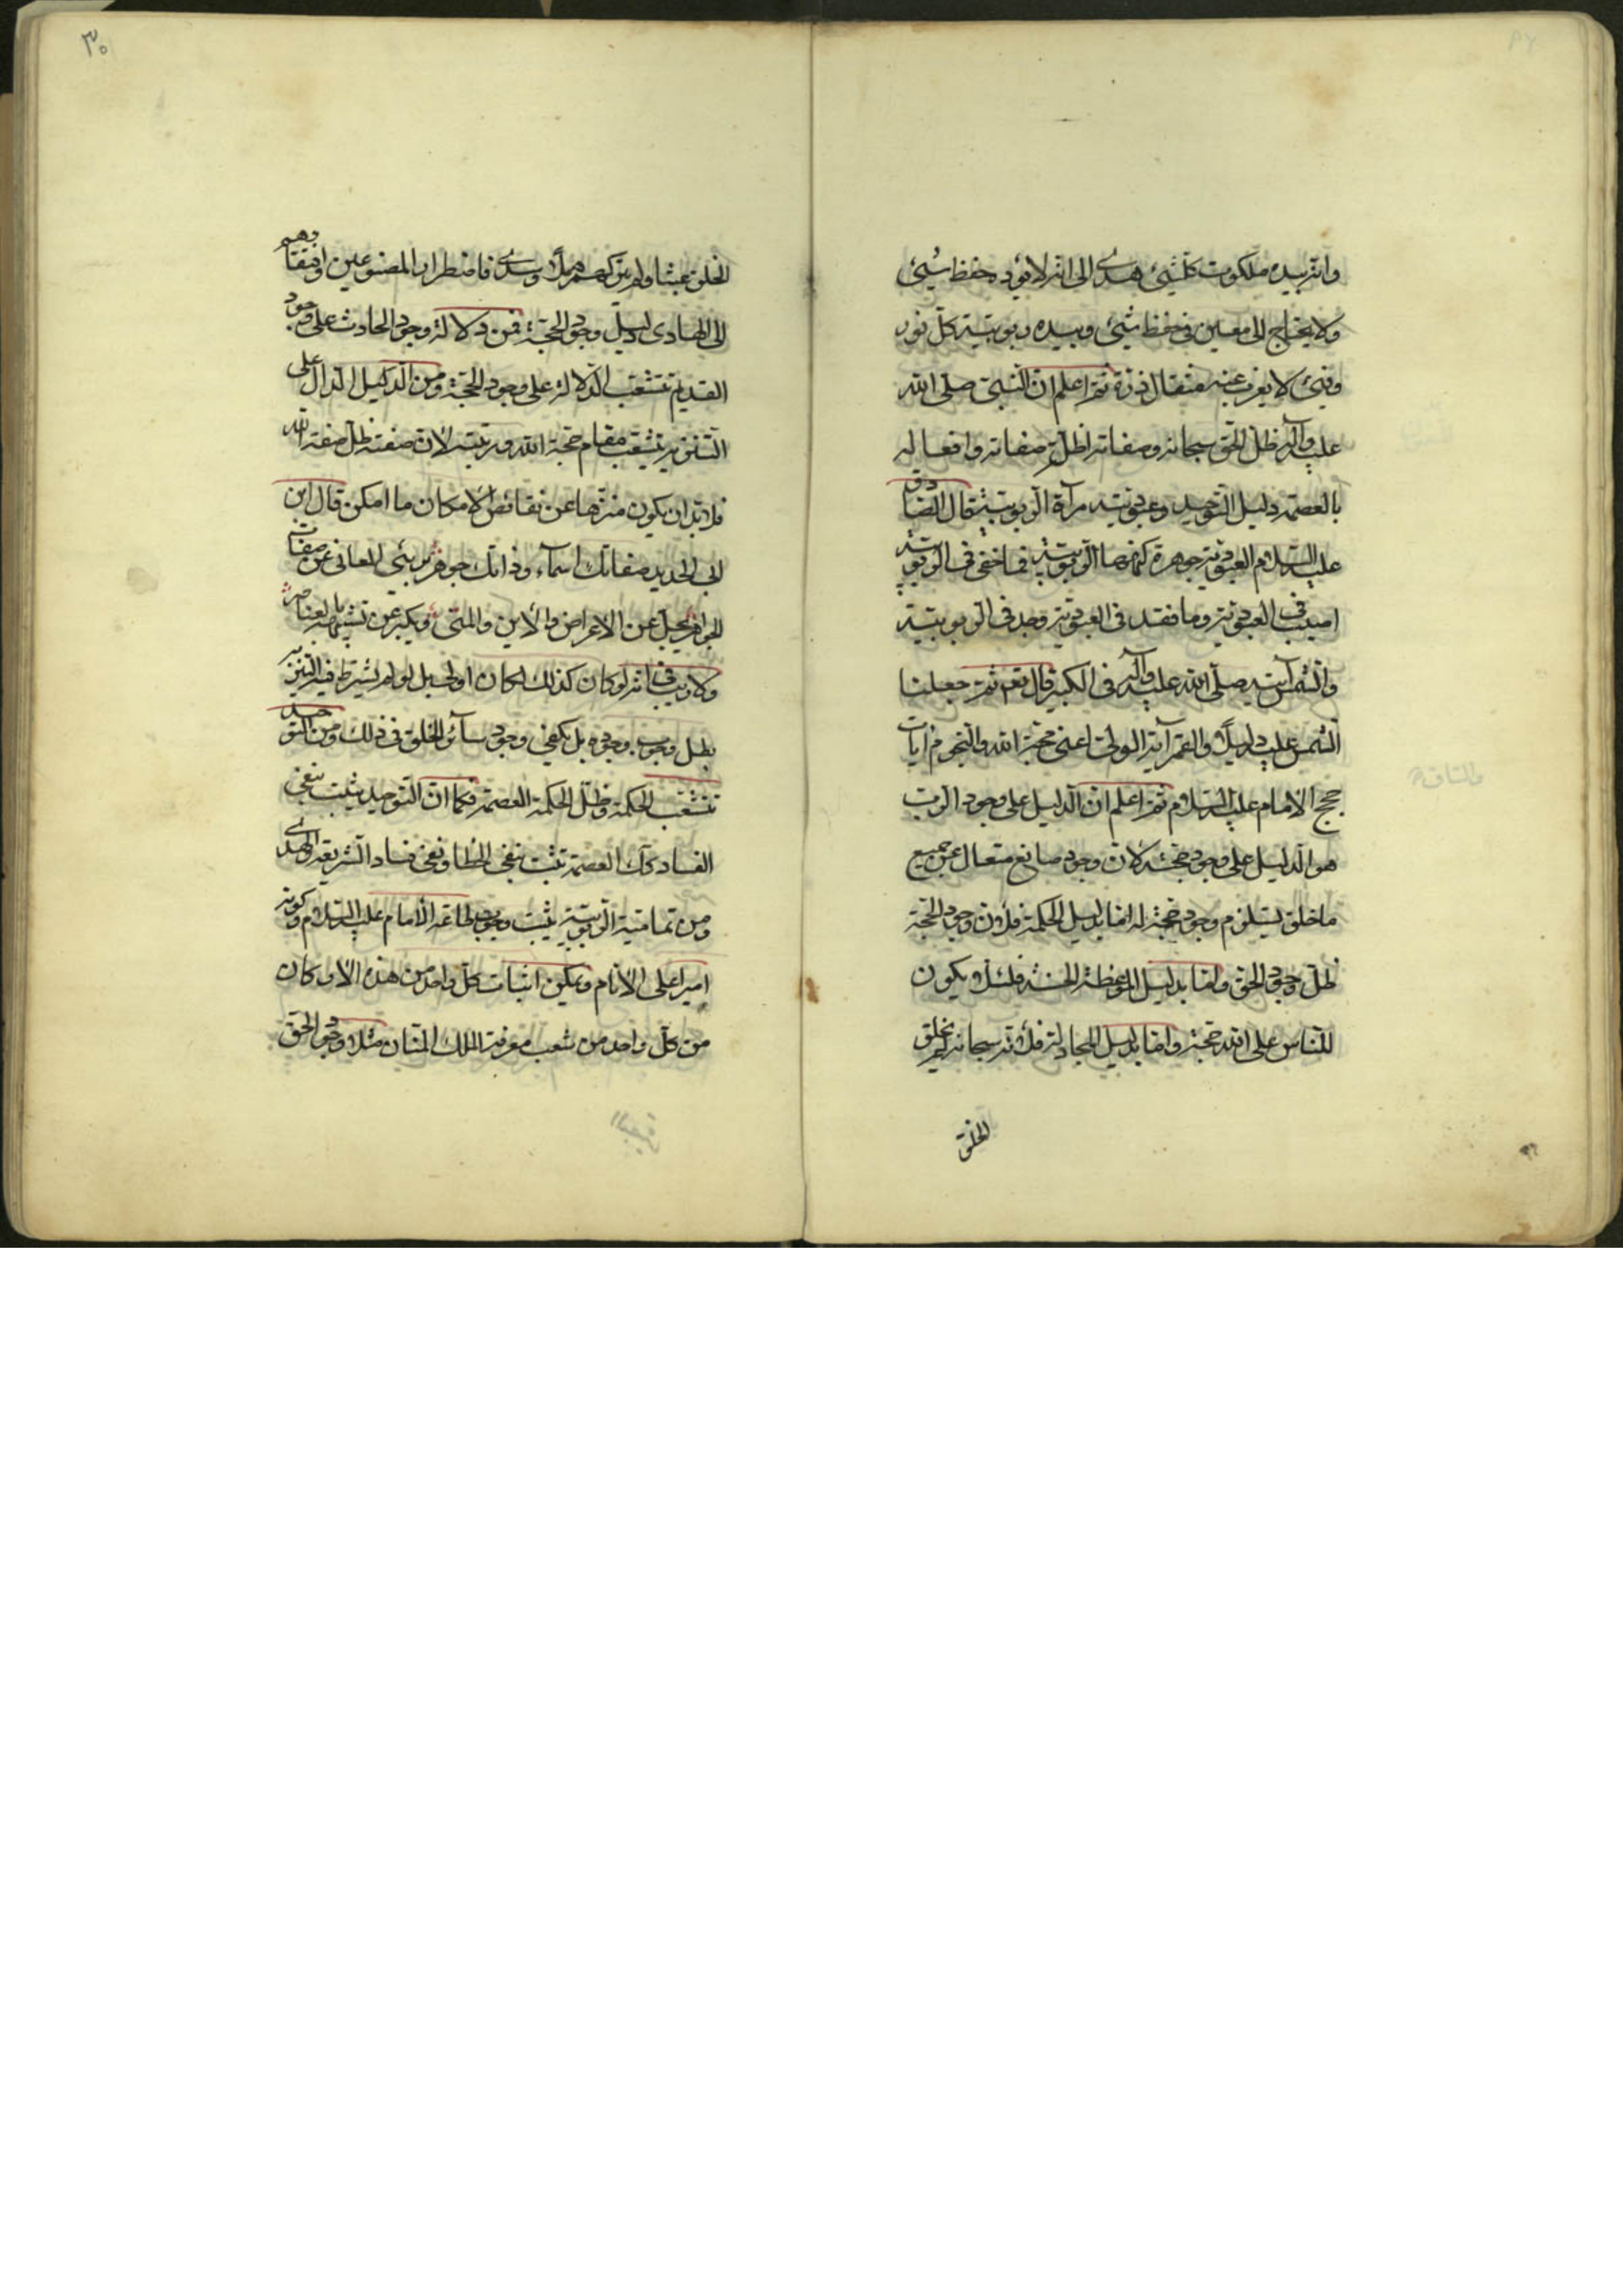 وانه بيده ملكوت كلشيئ هدى الى انه لا يؤده حفظ شيئ
ولا يحتاج الى معين فى حفظ شيئ وبيده ربوبية كل نور
وفيئ لا يعزب عنه مثقال ذرة ثم اعلم ان النبى صلى الله
عليه وآله ظل الحق سبحانه وصفاته اظلة صفاته وافعاله
بالعصمة دليل التوحيد وعبوديته مرآة الربوبية قال الصادق
عليه السلام العبودية جوهرة كنهها الربوبية فما خفى فى الربوبية
اصيب فى العبودية وما فقد فى العبودية وجد فى الربوبية
والشمس آيته صلى الله عليه وآله فى الكبير قال تعم ثم جعلنا
الشمس عليه دليلا والقمر آية الولى اعنى حجة الله والنجوم ايات
حجج الامام عليه السلام ثم اعلم ان الدليل على وجود الرب
هو الدليل على وجود حجته لان وجود صانع متعال عن جميع
ما خلق يستلزم وجود حجة له اما بدليل الحكمة فلان وجود الحجة
ظل وجود الحق واما بدليل الموعظة الحسنة فلئلا يكون
للناس على الله حجة واما بدليل المجادلة فلانه سبحانه لم يخلق
الخلق
٣٠
الخلق عبثا ولم يتركهم هملا وسدى فاضطرار المصنوعين وافتقارهم
الى الهادى دليل وجود الحجة فمن دلالة وجود الحادث على وجود
القديم تتشعب الدلالة على وجود الحجة ومن الدليل الدال على
التنزيه يتشعب مقام حجة الله ورتبته لان صفته ظل صفة الله
فلابد ان يكون منزها عن نقائص الامكان ما امكن قال ابن
ابى الحديد صفاتك اسماء وذاتك جوهر برئ المعانى عن صفات
الجواهر يجل عن الاعراض والاين والمتى ويكبر عن تشبيهه بالعناصر
ولا ريب فى انه لو كان كذلك لكان اولى بل لو لم يشترط فيه التنزيه
بطل وجوب وجوده بل يكفى وجود سائر الخلق فى ذلك ومن التوحيد
تتشعب الحكمة وظل الحكمة العصمة فكما ان التوحيد يثبت بنفى
الفساد كك العصمة تثبت بنفى الخطا ونفى فساد الشريعة والهدى
ومن تمامية الربوبية يثبت وجوب طاعة الامام عليه السلام وكونه
اميرا على الانام ويمكن اثبات كل واحد من هذه الاركان
من كل واحد من شعب معرفة الملك المنان مثلا وجود الحق